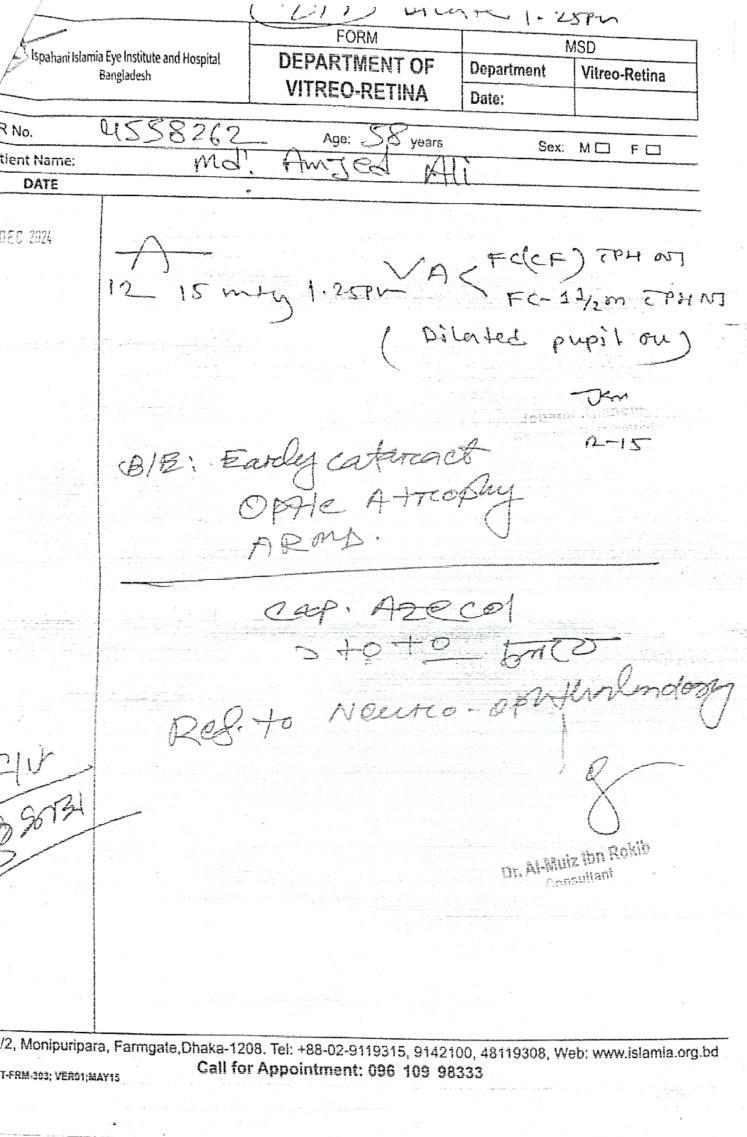 Dilate 1.25pm
Ispahani Islamia Eye Institute and Hospital
Bangladesh
FORM
DEPARTMENT OF
VITREO-RETINA
MSD
Department Vitreo-Retina
Date:
R No. 4558262 Age: 58 years Sex: M F
tient Name: Md. Amjed Ali
DATE
DEC 2024
A
12 15 1.25pm VA < FC(CF) PH
FC- 1 1/2 m PH NI
(Dilated pupil on)
12-15
B/E: Early cataract
Optic Atrophy
ARMD.
Cap. Azecol
+0+0
Ref. to Neuro-ophthalmology
Dr. Al-Muiz Ibn Rokib
Consultant
/2, Monipuripara, Farmgate,Dhaka-1208. Tel: +88-02-9119315, 9142100, 48119308, Web: www.islamia.org.bd
T-FRM-303; VER01;MAY15 Call for Appointment: 096 109 98333